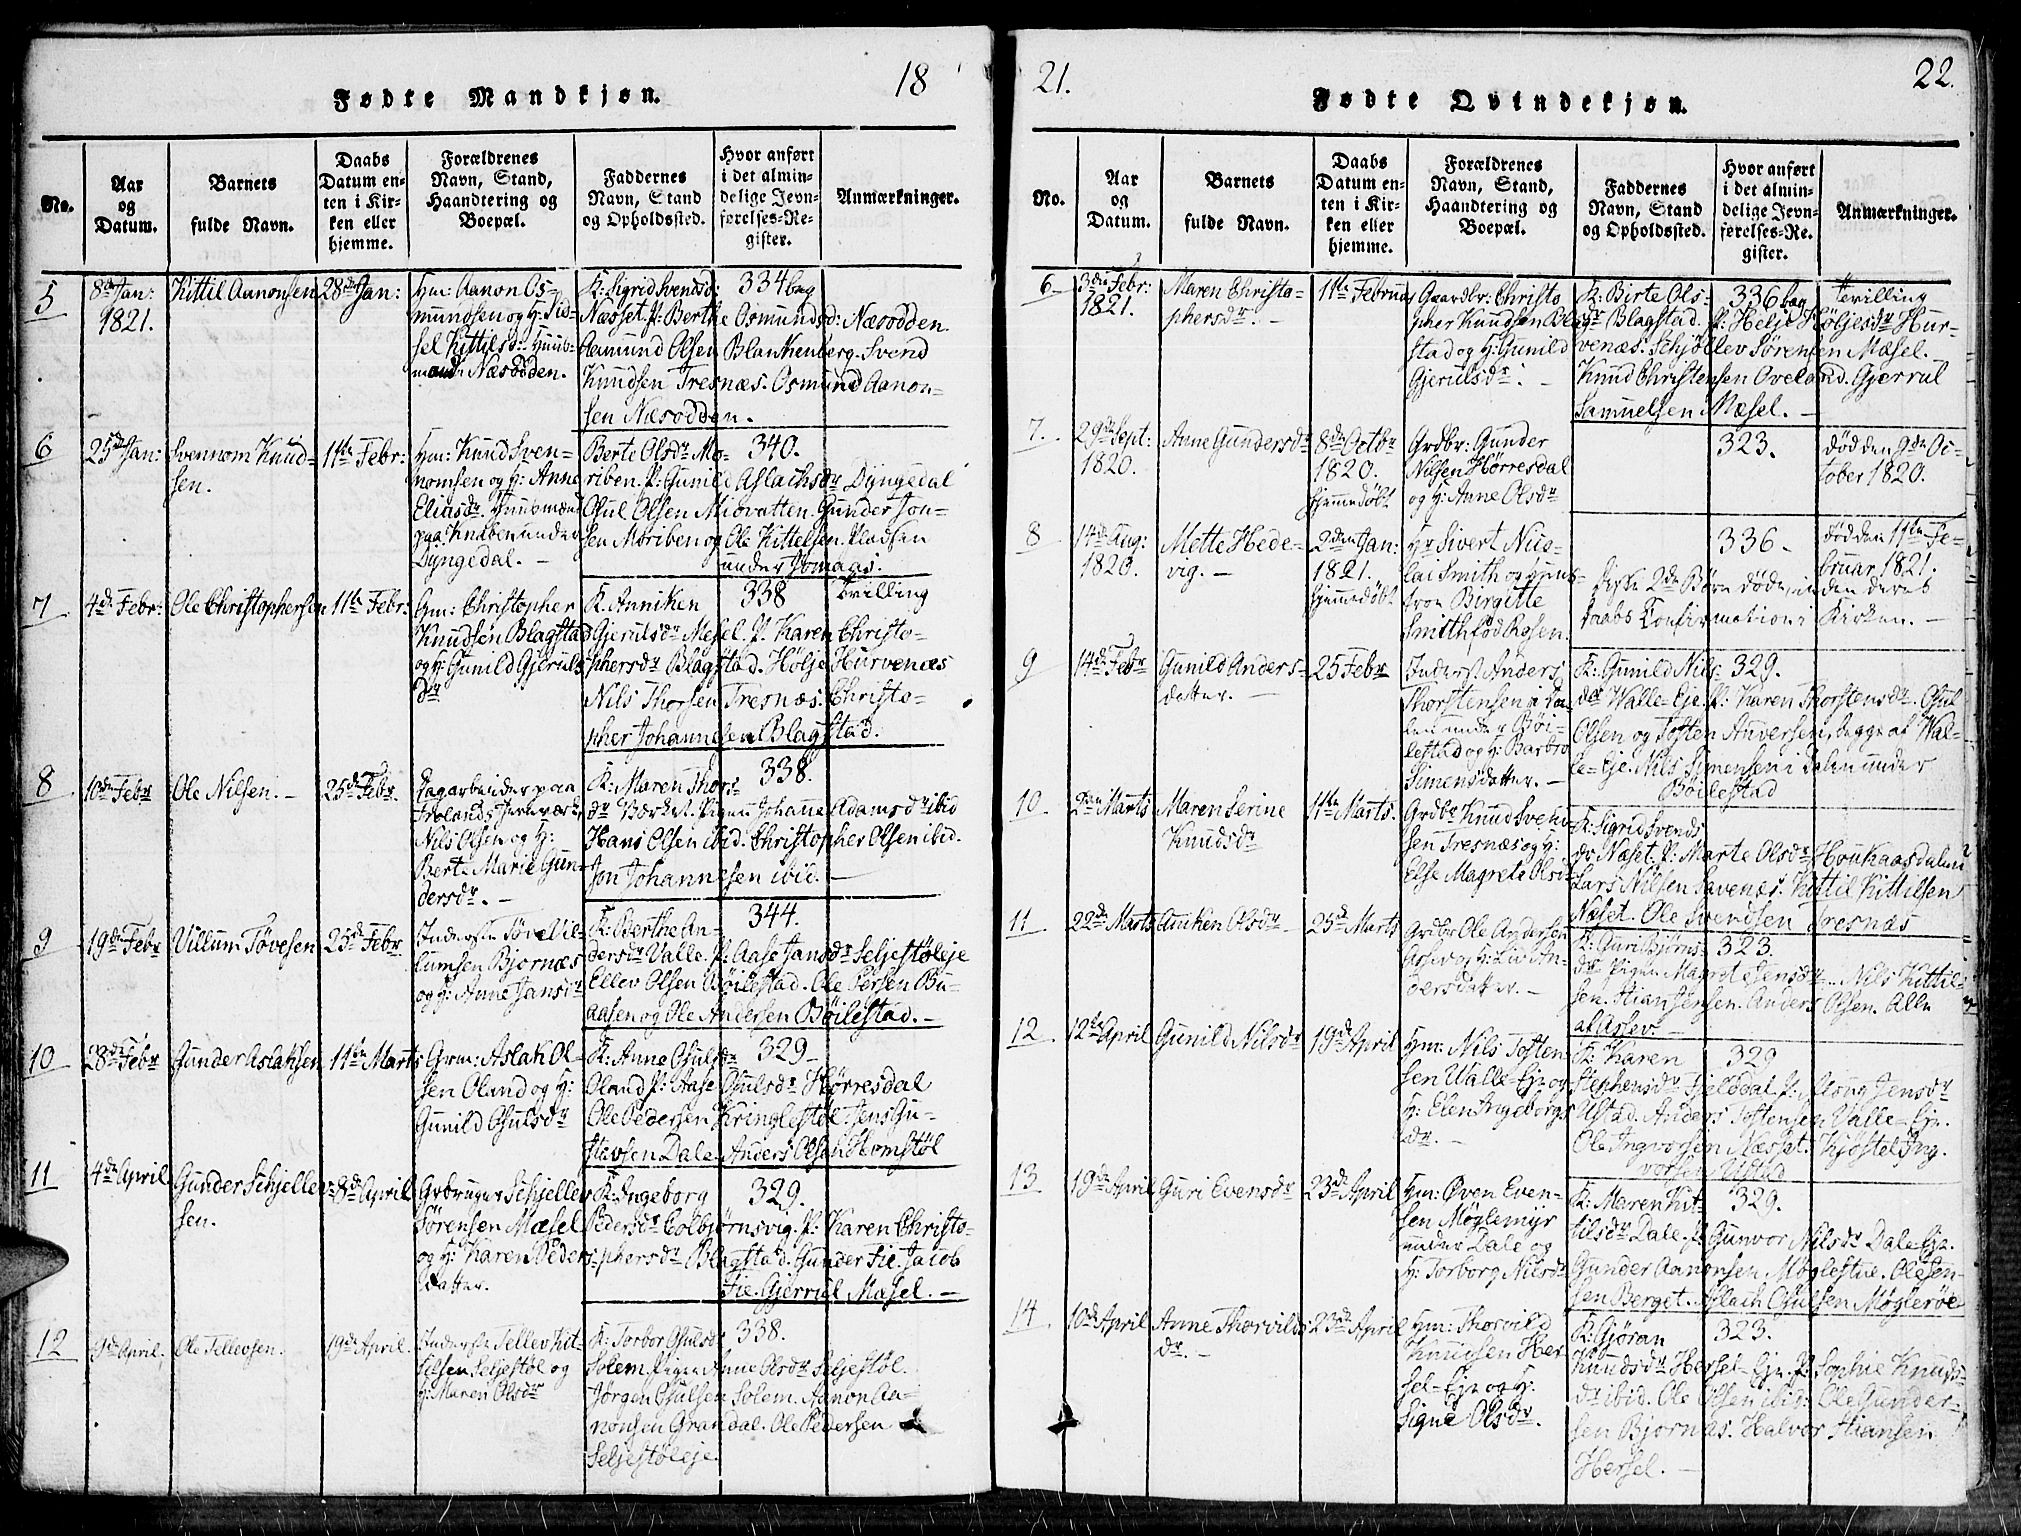 18
Fødte Mandkjøn.
No.
Aar og Datum.
Barnets fulde Navn.
Daabs Datum enten i Kirken eller hjemme.
Forældrenes Navn, Stand, Haandtering og Boepæl.
Faddernes Navn, Stand og Opholdssted.
Hvor anført i det almindelige Jevnførelses-Register.
Anmærkninger.
5
8de Jan: 1821.
Kittil Aanonsen
28de Jan:
Hm: Aanon Os-
mundsen og H: Sis-
sel Kittilsd: Huus-
mand Næsodden.
K: Sigrid Svendsd:
Næsset. P: Berthe Osmundsd: Næsodden.
Aamund Olsen Blankenberg. Svend
Knudsen Tresnæs. Osmund Aanon-
sen Næsodden.
334 bag
6
25de Jan:
Svennom Knud-
sen.
11te Febr:
Hm: Knud Sven-
nomsen og H: Anne
Eliasdr. Huusmænd
paa Knaben under
Dyngedal. –
Berte Olsdr Mo-
riben. P: Gunild Aslachsdr Dyngedal
Osul Olsen Miovatten. Gunder Jon-
sen Moriben og Ole Kittelsen Pladsen
under Jomaas.
340.
7
4de Febr:
Ole Christophersen
11te Febr:
Gm: Christopher
Knudsen Blagstad
og H: Gunild Gjeruls
dr
K: Anniken
Gjerulsdr Mesel. P. Karen Christo-
phersdr Blagstad. Hølje Hurvenæs
Nils Thorsen Tresnæs. Christo-
pher Johannesen Blagstad.
338
Tvilling
8
10de Febr
Ole Nilsen. –
25de Febr.
Dagarbeider paa
Frolands Jernværk,
Nils Olsen og H:
Berte Marie Gun-
dersdr. –
K: Maren Thors-
dr Værket. Pigen Johanne Adamsdr ibid
Hans Olsen ibid. Christopher Olsen ibid.
Jon Johannesen ibid. –
338.
9
19de Febr
Villum Tøvesen
25de Febr.
Inderste Tøve Vil-
lumsen Bjornæs
og H: Anne Jansdr
K: Berthe An-
dersdr Valle. P. Aase Jansdr Seljestøleje
Ellev Olsen Bøilestad. Ole Persen Bu-
aasen og Ole Andersen Bøilestad. –
344.
10
28de Febr
Gunder Aslaksen
11te Marts
Grm: Aslak Ol-
sen Oland og H:
Gunild Osulsdr
K: Anne Osulsdr
Oland P: Aase Osulsdr Hørresdal
Ole Pedersen Kringlestøl. Jens Gu-
stavsen Dale Anders Olsen Homstøl
329–
11
4de April
Gunder Schjellev-
sen.
8de April
Grbruger Schjellev
Sørensen Mæsel
og H: Karen Peders-
datter.
K: Ingeborg
Pedersdr Colbjørnsvig. P: Karen Christo-
phersdr Blagstad. Gunder Fie. Jacob
Fie. Gjerruel Mæsel. –
329.
12
9de April.
Ole Tellevsen.
19de April.
Inderste Tellev Kit-
tilsen Seljestøl og
H: Maren Olsdr
K: Torbor Osulsdr
Solem. Pigen Anne Olsdr Seljestøl.
Jørgen Osulsen Solem. Aanon Aa-
nonsen Grandal. Ole Pedersen
Seljestøleje.
338.
21.
22.
Fødte Qvindekjøn.
No.
Aar og Datum.
Barnets fulde Navn.
Daabs Datum enten i Kirken eller hjemme.
Forældrenes Navn, Stand, Haandtering og Boepæl.
Faddernes Navn, Stand og Opholdssted.
Hvor anført i det almindelige Jevnførelses-Register.
Anmærkninger.
6.
3die Febr: 1821.
Maren Christo-
phersdr. –
11te Februar
Gaardbr: Christo
pher Knudsen Blag-
stad og H: Gunild
Gjerulsdr. –
K: Birte Ols-
dr Blagstad. P: Helje Høljesdr Hur-
venæs. Schjøllev Sørensen Mæsel.
Knud Christensen Oveland. Gjerrul
Samuelsen Mæsel. –
336 bag
Tevilling
7.
29de Sept: 1820.
Anne Gundersdr
8de Octbr 1820. hjemmedøbt
Grdbr: Gunder
Nilsen Hørresdal
og H: Anne Olsdr
323.
død den 9de Oc-
tober 1820.
8
14de Aug: 1820.
Mette Hede-
vig. –
2den Jan: 1821. hjemmedøbt
Hr Sivert Nico-
lai Smith og Huus-
froe Birgitte
Smith fød Rosen.
336–
død den 11te Fe-
bruar 1821.
Disse 2de Børn døde, inden deres
Daabs Confirmation i Kirken. –
9
14de Febr
Gunild Anders-
datter. –
25 Febr
Inderst Anders
Thorstensen i Da-
len under Bøi-
lestad og H: Barbro
Simensdatter. –
K: Gunild Nils-
dr Walle-Eje. P: Karen Thorstensdr. Osul
Olsen og Tosten Anversen, begge af Wal-
le-Eje. Nils Simensen i Dalen under
Bøilestad
329.
10
2den Marts
Maren Serine
Knudsdr
11te Marts.
Grdbr Knud Svend-
sen Tresnæs og H:
Else Magrete Olsdr
K: Sigrid Svends
dr Næset. P: Marte Olsdr Houkaasdalen
Lars Nilsen Savenæs. Kittil Kittilsen
Næset. Ole Svendsen Tresnæs
11
22de Marts
Aniken Olsdr
25de Marts
Grdbr Ole Andersen
Assev og H: Liv An-
dersdatter. –
K: Guri Bjørns-
dr Pigen Magrete Jensdr. Nils Kittil-
sen. Stian Jensen. Anders Olsen. Alle
af Assev. –
323.
12
12te April
Gunild Nilsdr
19de April
Hm: Nils Tosten
sen Walle-Eje og
H: Elen Ingeborgs
dr. –
K: Karen
Stephensdr Fjeldal. P: Along Jensdr
Ustad. Anders Tostensen Valle-Eje.
Ole Ingvorsen Næsset. Kjøstel Ing.
vorsen Ustad
329
13
19de April
Guri Evensdr
23de April
Hm: Øven Even-
sen Møglemyr
under Dale og
H: Torborg Nilsdr
K: Maren Kit-
tilsdr Dale. P. Gunvor Nilsdr Dale-Eje.
Gunder Aanonsen Møglestue. Ole Jen-
sen Berget. Aslach Osulsen Møglerøe
329.
14
10de April
Anne Thorvilds
dr. –
23de April
Hm: Thorvild
Knudsen Her
sel-Eje og H:
Signe Olsdr.
K: Gjøran
Knudsdr Hersel-Eje. P. Sophie Knuds-
dr ibid. Ole Olsen ibid. Ole Gunder-
sen Bjornæs. Halvor Stiansen
Hersel. –
323.